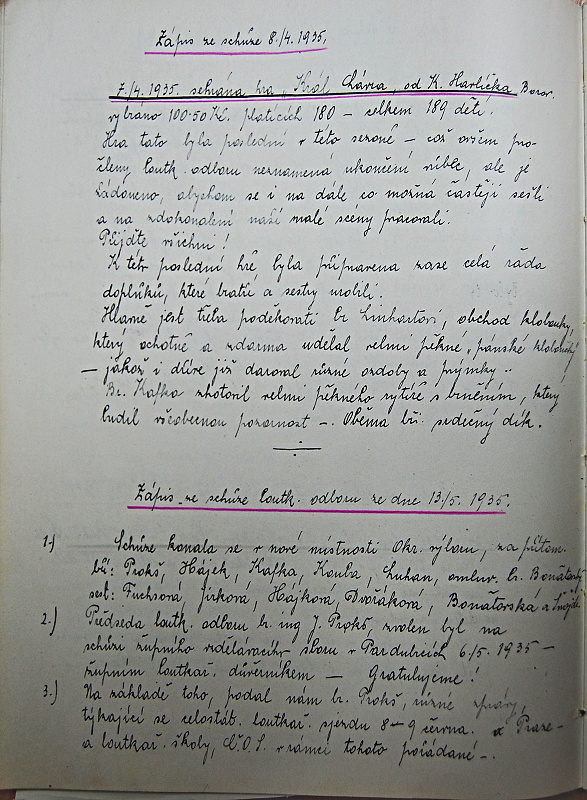 Zápis ze schůze 8./4. 1935.
7./4. 1935. sehrána hra „Král Lávra„ od K. Havlíčka Borov.
vybráno 100·50 Kč. platících 180 — celkem 189 dětí.
Hra tato byla poslední v této sezoně — což ovšem pro
členy loutk. odboru neznamená ukončení vůbec, ale je
žádoucno, abychom se i na dále co možná častěji sešli
a na zdokonalení naší malé sceny pracovali.
Přijďte všichni!
K této poslední hře, byla připravena zase celá řada
doplňků, které bratři a sestry zrobili.
Hlavně jest třeba poděkovati br Linhartovi, obchod klobouky,
který ochotně a zdarma udělal velmi pěkné „pánské klobouky"
— jakož i dříve již daroval různé ozdoby a prýmky –.
Br. Kafka zhotovil velmi pěkného rytíře s brněním, který
budil všeobecnou pozornost –. Oběma bří. srdečný dík.
Zápis ze schůze loutk. odboru ze dne 13./5. 1935.
1.) Schůze konala se v nové místnosti Okr. výboru, za přítom.
bří: Prokš, Hájek, Kafka, Kouba, Luhan, omluv. br. Bonátorský
sest: Fuchsová, Jirková, Hájková, Dvořáková, Bonátorská a
2.) Předseda loutk. odboru br. ing J. Prokš, zvolen byl na
schůzi župního vzdělávacího sboru v Pardubicích 6./5. 1935 —
župním loutkař. důvěrníkem — Gratulujeme!
3.) Na základě toho, podal nám br. Prokš, různé zprávy,
týkající se celostát. loutkař. sjezdu 8–9 června. v Praze–
a loutkař. školy, Č.O.S. v rámci tohoto pořádané –.